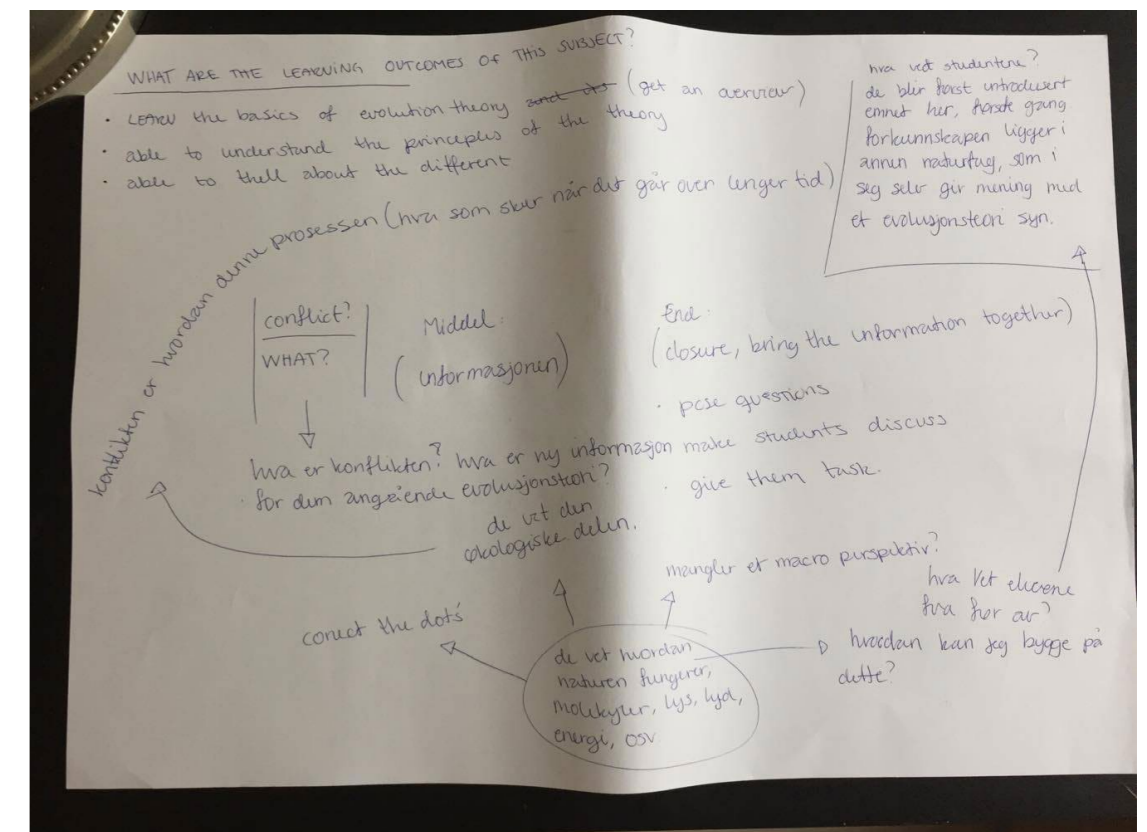 WHAT ARE THE LEARNING OUTCOMES OF THIS SUBJECT?
· LEARN the basics of evolution theory (get an overview)
· able to understand the principles of the theory
· able to thell about the different
hva vet studentene?
de blir først introdusert
emnet her, første gang
forkunnskapen ligger i
annen naturfag, som i
seg selv gir mening med
et evolusjonsteori syn.
konflikten er hvordan denne prosessen (hva som skjer når det går over lenger tid)
conflict?
WHAT?
Middel.
(informasjonen)
End.
(closure, bring the information together)
· pose questions
make students discuss
· give them task.
hva er konflikten? hva er ny informasjon
for dem angående evolusjonsteori?
de vet den
økologiske delen.
mangler et macro perspektiv?
hva vet elevene
fra før av?
conect the dots
de vet hvordan
naturen fungerer,
molekyler, lys, lyd,
energi, osv
hvordan kan jeg bygge på
dette?